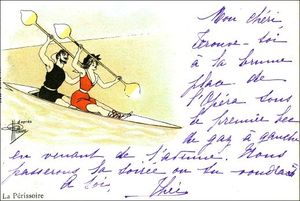 Mon chéri
Trouve-toi
à la brune
place de
l'Opéra sous
le premier bec
de gaz à gauche
en venant de l'avenue. Nous
passerons la soirée où tu voudras
à toi,
d'après
La Périssoire